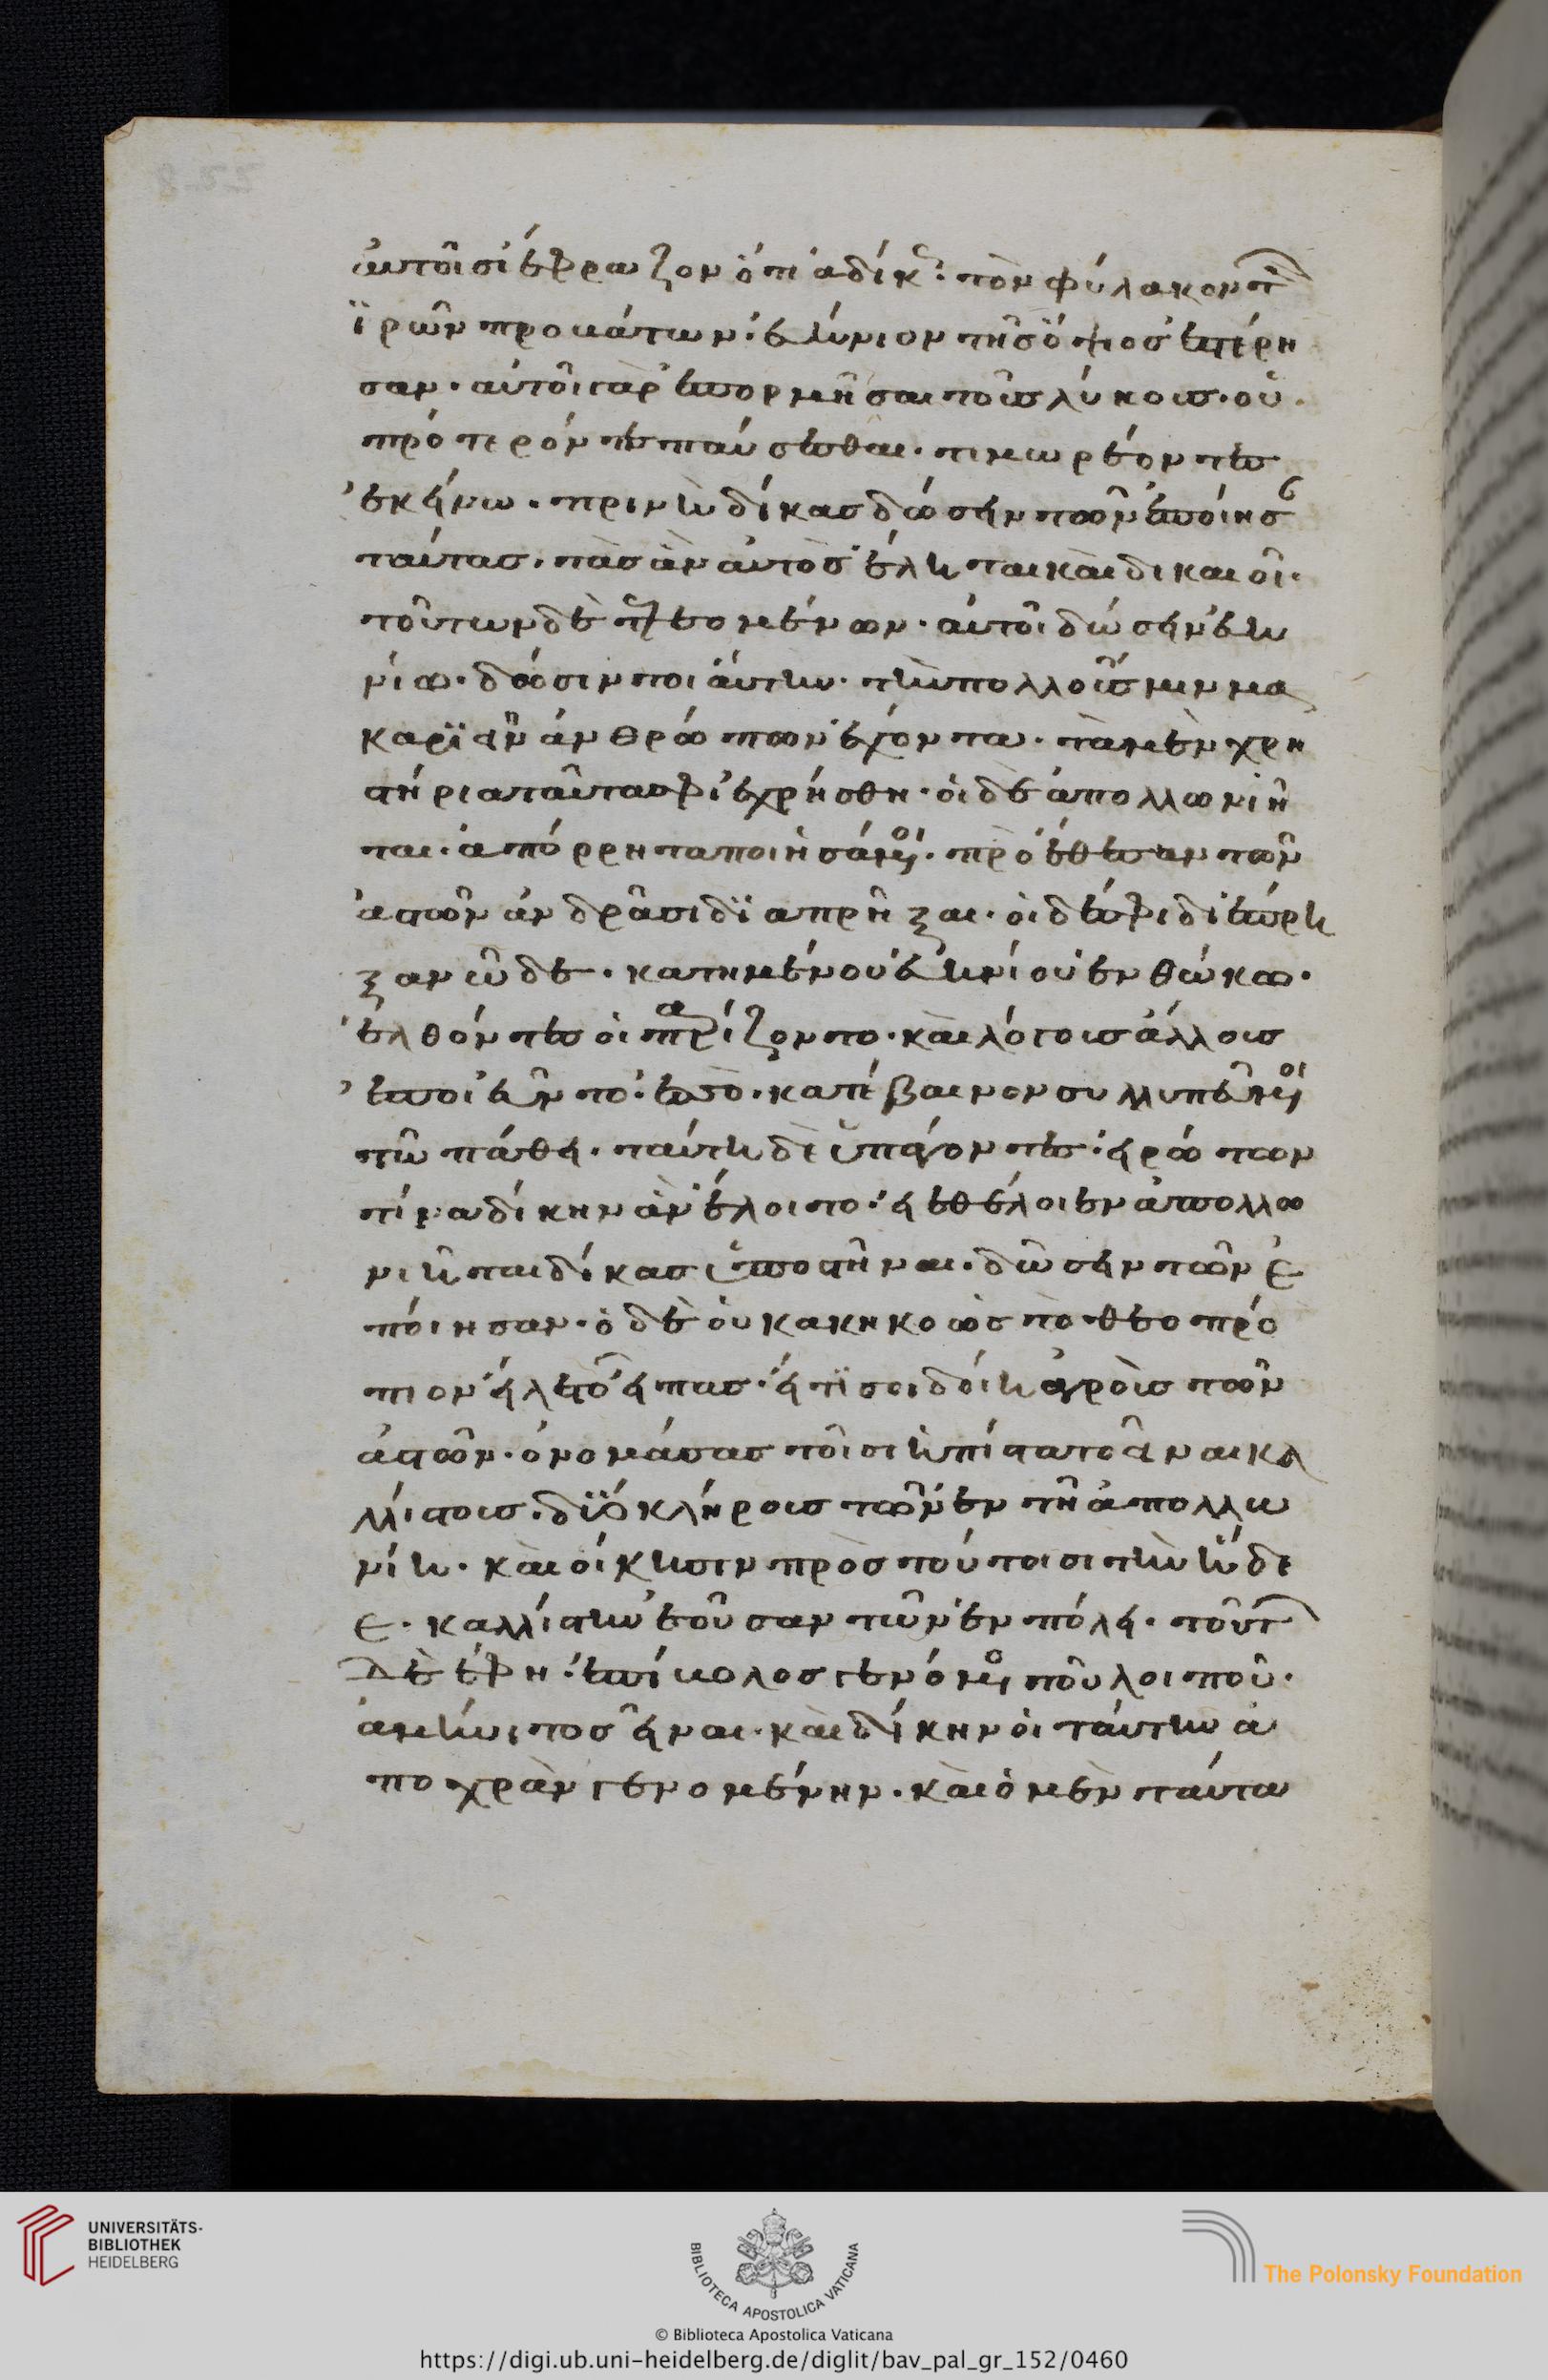 αὐτοῖσι ἔφραζον ὅτι ἀδίκως· τὸν φύλακον τῶν
ϊρῶν προβάτων· εὐήνιον τῆς ὄψιος ἐστέρη
σαν· αὐτοὶ γὰρ ἐπορμῆσαι τοῖς λύκοις· οὐ
πρότερόν τε παύσεσθαι· τιμωρέοντες
ἐκείνω· πρὶν ἢ δίκας δώσειν τῶν ἐποίησ
ταύτας· τὰς ἂν αὐτὸς ἕληται καὶ δικαιοῖ·
τούτων δὲ τελεομένων· αὐτοὶ δώσειν εὐη
νίω· δόσιν τοιαύτην· τὴν πολλοῖς μιν μα
καρϊεῖν ἀνθρώπων ἔχοντα· τὰ μὲν χρη
στήρια ταῦτα σφι ἐχρήσθη· οἱ δὲ ἀπολλωνιῆ
ται· ἀπόρρητα ποιησάμενοι· προέθεσαν τῶν
ἀστῶν ἀνδράσι δϊαπρῆξαι· οἱ δέ σφι διέπρη
ξαν ὧδε· κατημένου εὐηνίου ἐν θώκω·
ἐλθόντες οἱ παρίζοντο· καὶ λόγοις ἄλλοις
ἐποιεῦντο· ἐς ὃ· κατέβαινον συλλυπεύμενοι
τῶ πάθει· ταύτη δὲ ὑπάγοντες· εἰρώτων
τίνα δίκην ἂν ἕλοιτο· εἰ ἐθέλοιεν ἀπολλω
νιῆται δίκας ὑποστῆναι· δώσειν τῶν ἐ
ποίησαν· ὁ δὲ οὐκ ἀκηκοὼς τὸ θεοπρό
πιον εἵλετο εἴπας· εἴ τϊς οἱ δοίη ἀγροὶς τῶν
ἀστῶν· ὀνομάσας τοῖσι ἠπίστατο εἶναι κα
λλίστοις· δϋο κλήροις τῶν ἐν τῆ ἀπολλω
νίη· καὶ οἴκησιν πρὸς τούτοισι τὴν ἤδε
ε· καλλίστην ἐοῦσαν τῶν ἐν πόλει· τούτων
δὲ ἔφη· ἐπίβολος γενόμενος τοῦ λοιποῦ·
ἀμήνιτος εἶναι· καὶ δίκην οἱ ταύτην ἀ
ποχρὰν γενομένην· καὶ ὁ μὲν ταῦτα
UNIVERSITÄTS-
BIBLIOTHEK
HEIDELBERG
BIBLIOTECA APOSTOLICA VATICANA
The Polonsky Foundation
© Biblioteca Apostolica Vaticana
https://digi.ub.uni-heidelberg.de/diglit/bav_pal_gr_152/0460